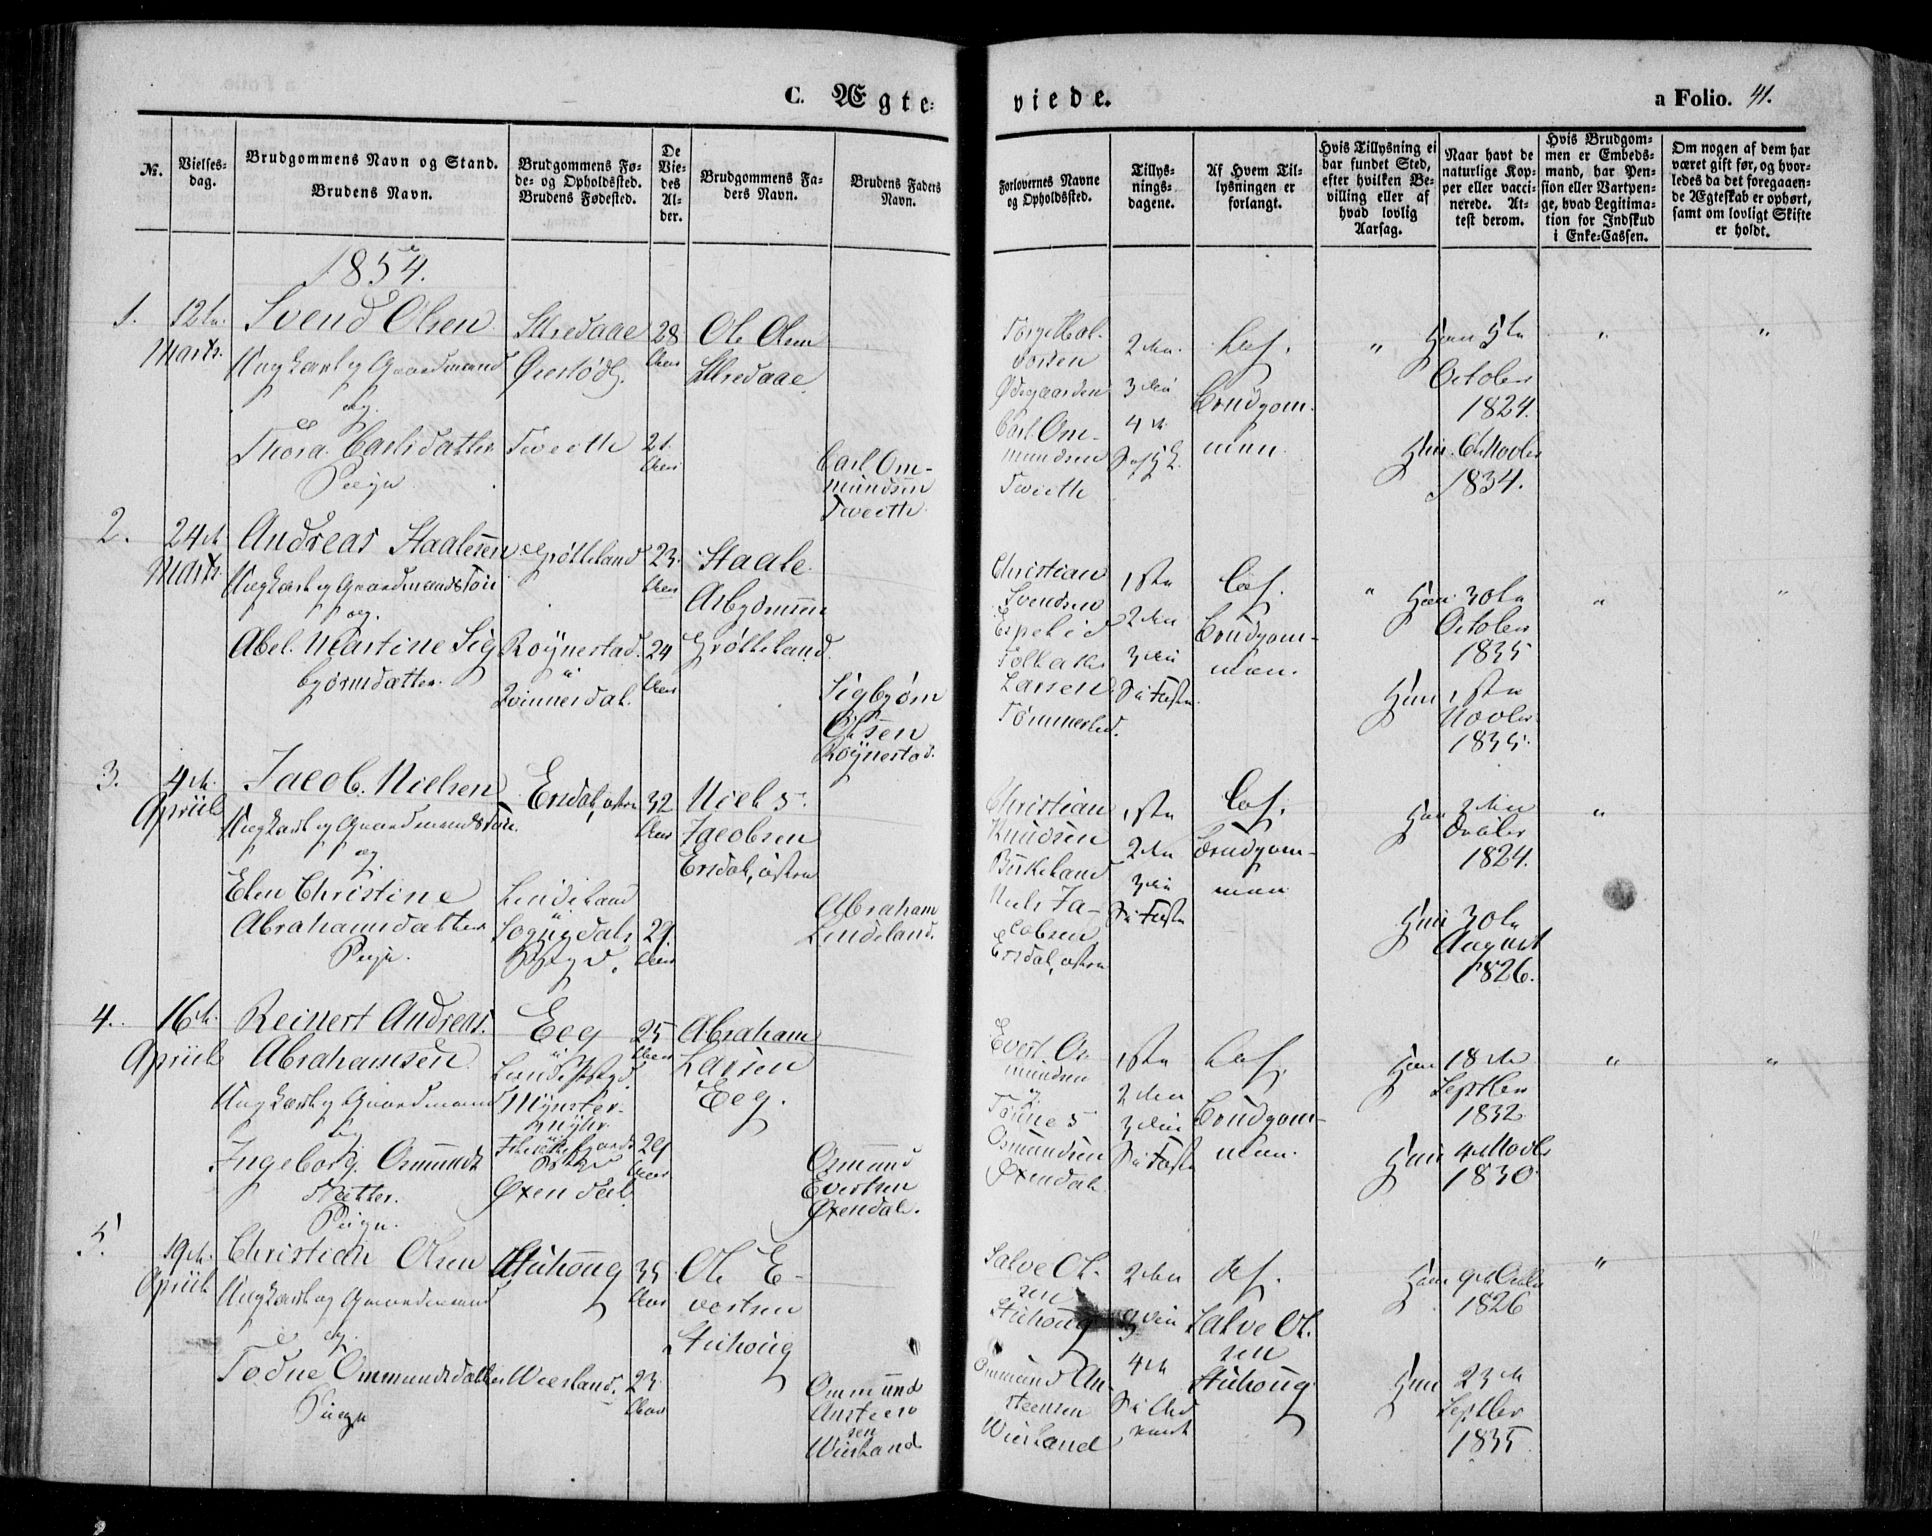 C. Ægte-
viede.
a Folio. 41.
No.
Vielses-
dag.
Brudgommens Navn og Stand.
Brudens Navn.
Brudgommens Fø-
de- og Opholdsted.
Brudens Fødested.
De
Vie-
des
Al-
der.
Brudgommens Fa-
ders Navn.
Brudens Faders
Navn.
Forlovernes Navne
og Opholdsted.
Tillys-
nings-
dagene.
Af Hvem Til-
lysningen er
forlangt.
Hvis Tillysning ei
har fundet Sted,
efter hvilken Be-
villing eller af
hvad lovlig
Aarsag.
Naar havt de
naturlige Kop-
per eller vacci-
nerede. At-
test derom.
Hvis Brudgom-
men er Embeds-
mand, har Pen-
sion eller Vartpen-
ge, hvad Legitima-
tion for Indskud
i Enke-Cassen.
Om nogen af dem har
været gift før, og hvor-
ledes da det foregaaen-
de Ægteskab er ophørt,
samt om lovligt Skifte
er holdt.
1854.
1.
12te
Marts.
Svend Olsen
Ungkarl og Gaardmand
og
Thora Carlsdatter
Pige
Øvestød
Tveith
28
Aar
21.
Aar
Ole Olsen
Carl Om-
mundsen
Tveith
Torge Hal-
vorsen
Ødegaarden
Carl Om-
mundsen
Tveith
2den
3die
4de
Brudgom-
men.
Ham 5te
October
1824.
Hun 6te Novbr
1834.
2.
24de
Marts
Andreas Staalesen
Ungkarl og Gaardmandssøn
og
Abel Martine Sig
bjørnsdatter
Grøtteland
Røynestad
i
Qvinnesdal.
23
Aar
24
Aar
Staale
Asbjørnsen
Grøtteland
Sigbjørn
Olsen
Røynestad.
Christian
Svendsen
Espelid
Tollak
Larsen
1ste
2den
3die
S i Faste
Brudgom-
men.
Ham 30te
October
1835
Hun 1ste
Novbr
1835.
3.
4de
Apriil
Jacob Nielsen
Ungkarl og Gaardmandssøn
og
Elen Christine
Abrahamsdatter
Pige.
Ersdal, østre
Lindeland
i
Sognedals
Pstgd.
32
Aar
29.
Aar
Niels
Jacobsen
Ersdal, østre
Abraham
Lindeland.
Christian
Knudsen
Birkeland
Niels Ja-
cobsen
Ersdal, østre
1ste
2den
3die
S i Faste
Brudgom-
men
Ham 2den
Octbr
1824.
Hun 30te
August
1826.
4.
16de
Apriil
Reinert Andreas
Abrahamsen
Ungkarl og Gaardmand
og
Ingeborg Osmunds
datter.
Pige.
Eeg
i
Øxendal
25
Aar
24
Aar
Abraham
Larsen
Eeg.
Osmund
Evertsen
Øxendal.
Evert Os
mundsen
og
Tønnes
Osmundsen
Øxendal
1ste
2den
3die
S i Faste
Brudgom-
men.
Ham 18de
Septbr
1832
Hun 4de Novbr
1830.
5.
19de
Apriil
Christian Olsen
Ungkarl og Gaardmand
og
Todne Ommundsdatter
Pige
Stuhoug
Wiersland.
35
Aar
23
Aar
Ole E-
vertsen
Stuhoug
Ommund
Ansteen
sen
Wiersland
Salve Ol-
sen
Stuhoug
Ommund An-
steensen
Wiersland
2den
3die
4de
S i Ad
vent
Af
Salve Ol-
sen
Stuhoug
Ham 9de Octbr
1826
Hun 23de
Septbr
1835